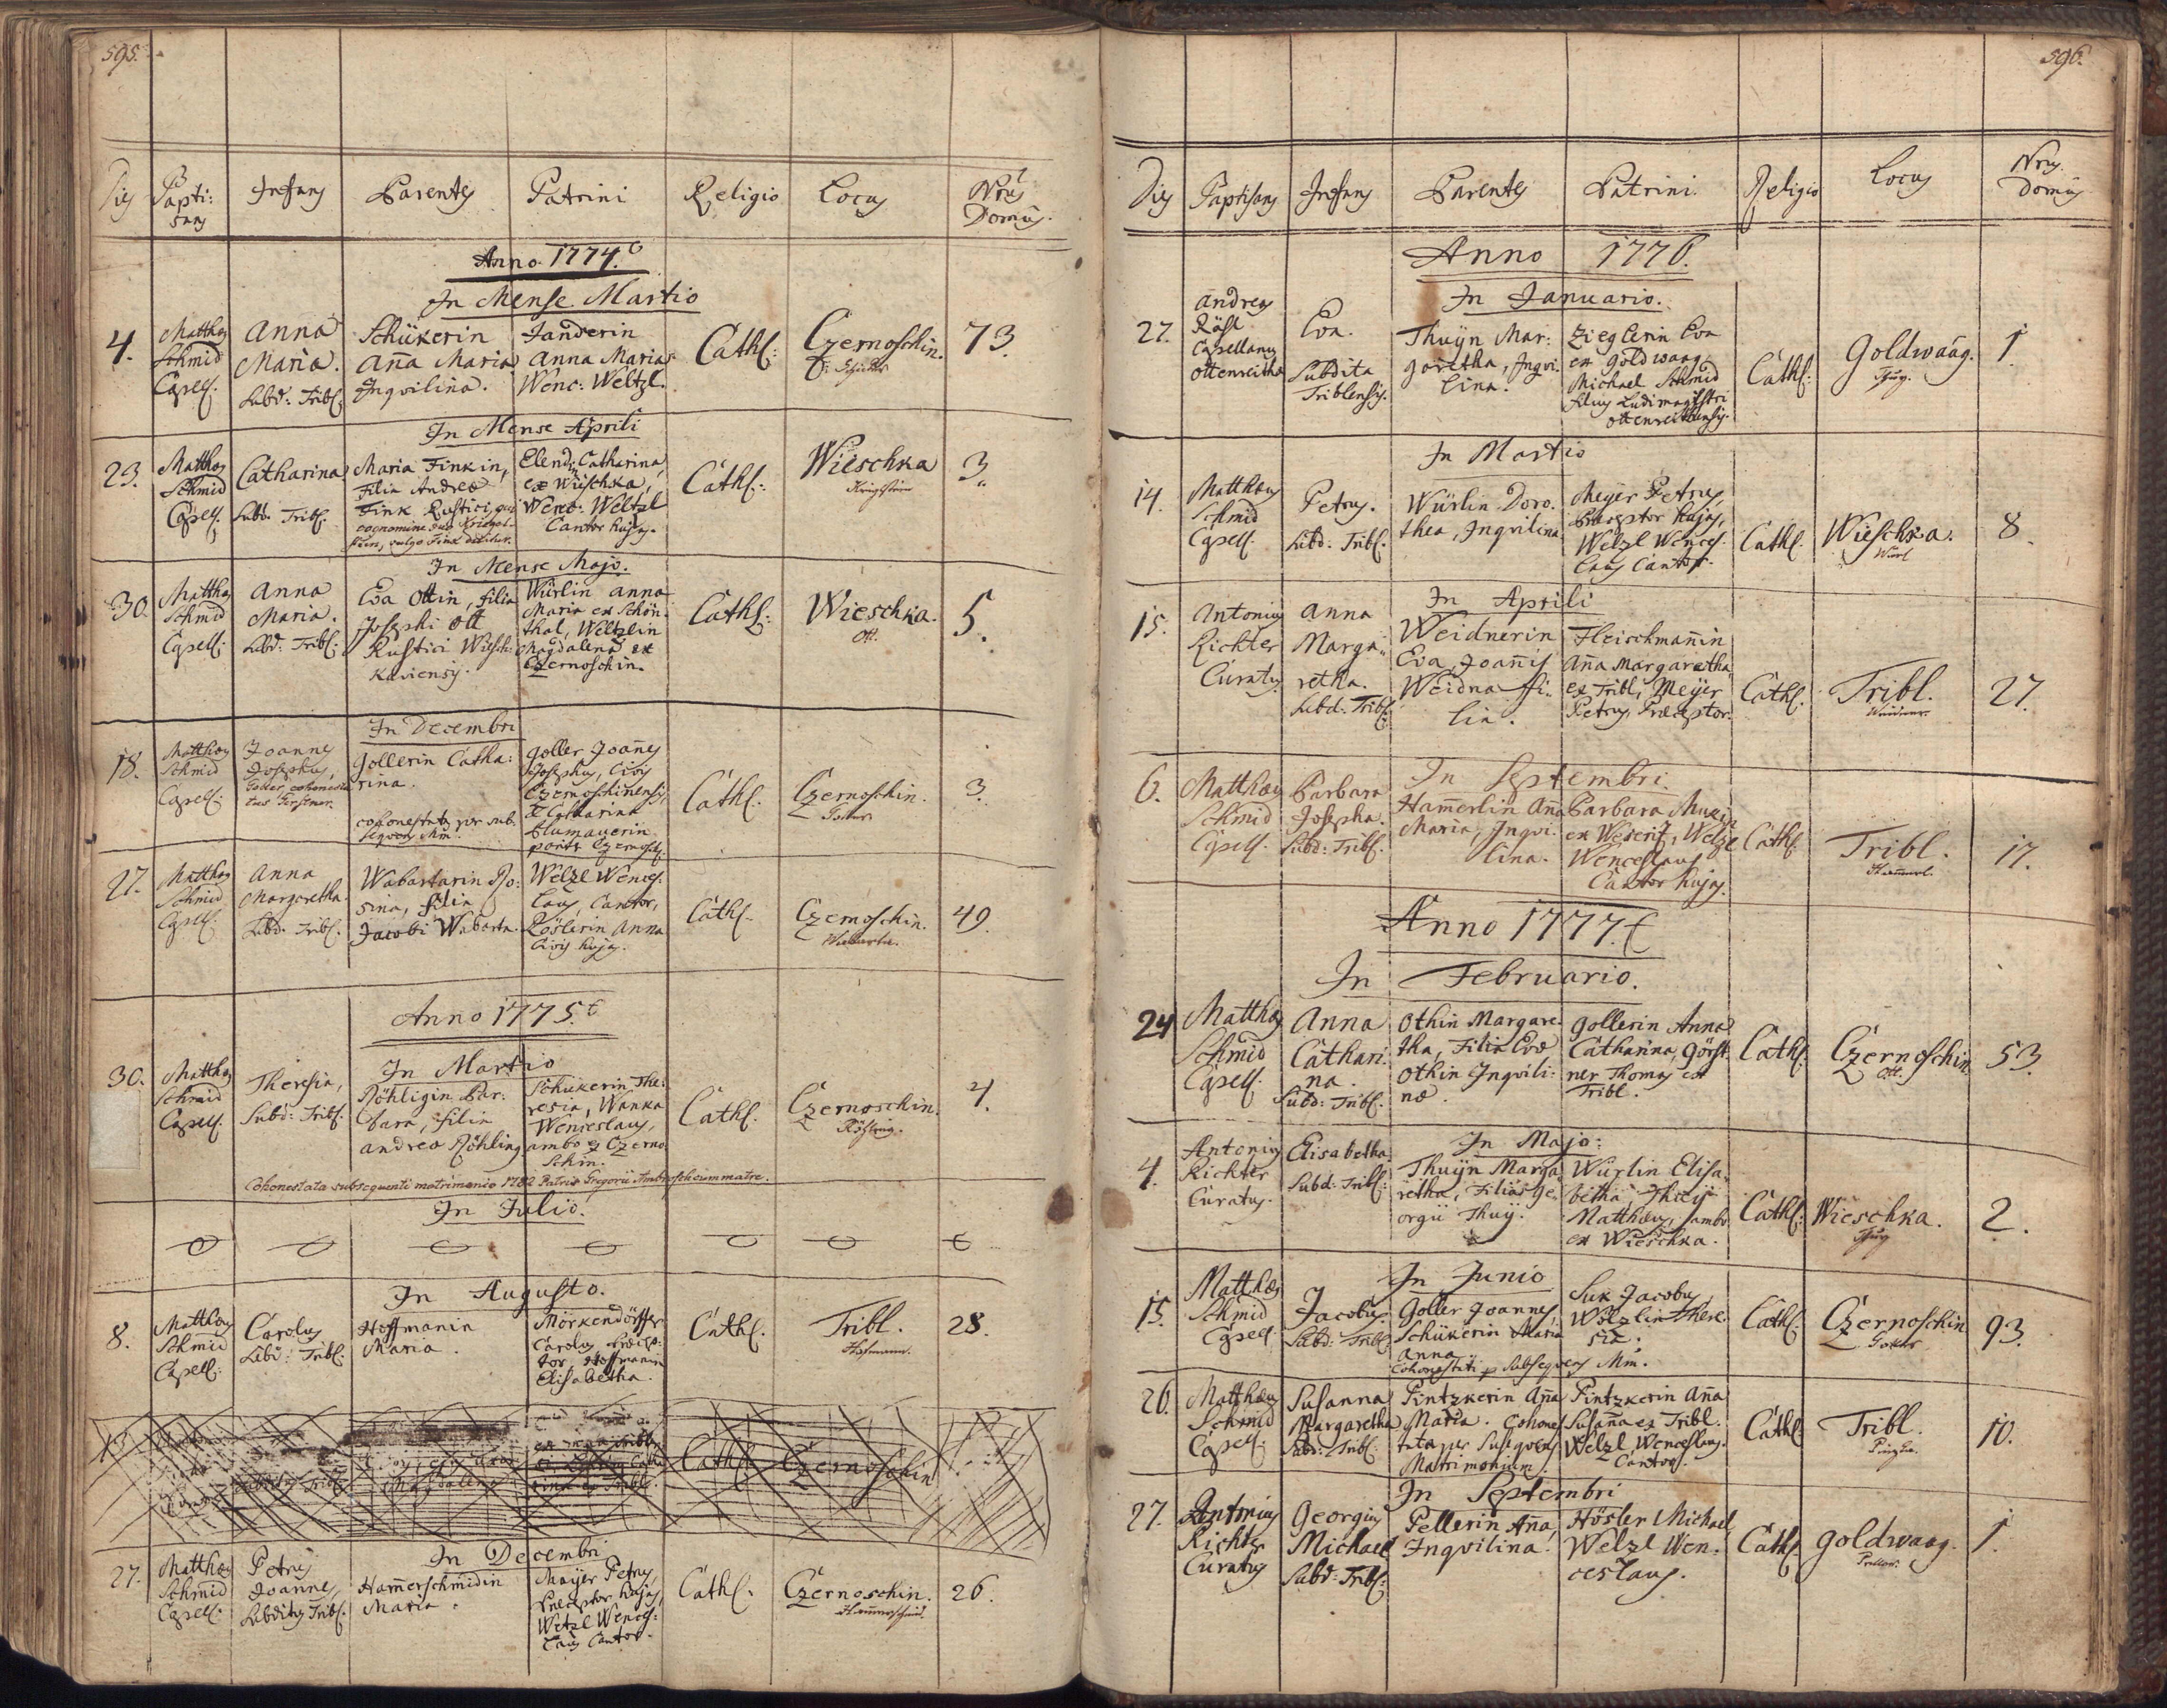 595.
Dies Baptisans Infans Parentes Patrini Religio Locus Nrus Domûs.
Anno 1774.
In Mense Martio
4. Matthæus Schmid Capell: Anna Maria. Subd: Tribl: Schükerin Anna Maria Inqvilina. Janderin Anna Maria Wenc: Weltzl. Cathl: Czernoschin. 73.
In Mense Aprili
23. Matthæus Schmid Capell. Catharina Subd. Tribl. Maria Finkin, Filia Andreæ Fink Rustici, qui cognomine vulgo Fink dicitur. Elendin Catharina, ex Wieschka, Wenc: Weltzl Cantor hujus. Cathl: Wieschka 3.
In Mense Majo.
30. Matthæus Schmid Capell: Anna Maria. Subd: Tribl: Eva Ottin, filia Josephi Ott Rustici Wieschkaviensis. Würlin Anna Maria ex Schönthal, Weltzlin Magdalena ex Czernoschin. Cathl: Wieschka. Ott. 5.
In Decembri
18. Matthæus Schmid Capell: Joannes Josephus, Gollerin Catharina. cohonestatus per subseqvens Mm. Goller Joannes Josephus, Civis Czernoschinensis, & Catharina Blumauerin Cathl. Czernoschin. 3.
27. Matthæus Schmid Capell. Anna Margaretha. Subd. Tribl. Wabartarin Rosina, filia Jacobi Wabarta. Welzl Wenceslaus, Cantor, Röslerin Anna Civis hujus. Cathl. Czernoschin. Wabarta. 49.
Anno 1775.
In Martio
30. Matthæus Schmid Capell. Theresia, Subd: Tribl. Röhligin Barbara, filia Andreæ Röhling Schukerin Theresia, Wanka Wenceslaus, ambo ex Czernoschin. Cathl. Czernoschin. 4.
Cohonestata subsequenti matrimonio 1782 Patris Gregorii cum matre.
In Julio.
In Augusto.
8. Matthæus Schmid Capell. Carolus Subd: Tribl. Hoffmanin Maria. Mörkendörffer Carolus Hoffmanin Elisabetha. Cathl. Tribl. Hofmann. 28.
Magdalena Cathl. Czernoschin
In Decembri
27. Matthæus Schmid Capell. Petrus Joannes, Subditus Tribl. Hamerschmidin Maria. Mayer Petrus, Præceptor hujus, Wetzl Wenceslaus Cantor. Cathl. Czernoschin. Hammerschmid. 26.
596.
Dies Baptisans Infans Parentes Patrini. Religio Locus Nrus. Domûs
Anno 1776.
In Januario.
27. Andreas Capellanus Ottenreith Eva. Subdita Triblensis. Thuÿn Margaretha, Inqvilina. Zieglerin Eva ex Goldwaag, Michael Schmid filius Ludimagistri Ottenreithensis. Cathl. Goldwaag. 1
In Martio
14. Matthæus Schmid Capell. Petrus. Subd: Tribl. Würlin Dorothea, Inqvilina Meÿer Petrus, Præceptor hujus, Welzl Wenceslaus Cantor. Cathl. Wieschka. Würl 8.
In Aprili
15. Antonius Richter Curatus Anna Margaretha. Subd: Tribl: Weidnerin Eva, Joannis Weidna filia. Fleischmañin Aña Margaretha ex Tribl, Meÿer Petrus, Præceptor. Cathl. Tribl. 27.
In Septembri.
6. Matthæus Schmid Capell. Barbara Josepha. Subd: Tribl. Hamerlin Aña Maria, Inqvilina. Barbara ex Weserit, Welzl Wenceslaus Cantor hujus. Cathl. Tribl. 17.
Anno 1777.
In Februario.
24 Matthæus Schmid Capell. Anna Catharina. Subd: Tribl. Othin Margaretha, Filia Evæ Othin Inqvilinæ. Gollerin Anna Catharina, Görstner Thomas ex Tribl. Cathl. Czernoschin. Ott. 53.
In Majo:
4. Antonius Richter Curatus. Elisabetha. Subd: Tribl: Thuÿn Margaretha, Filia Georgii Thuÿ. Würlin Elisabetha, Thuÿ Matthæus, ambo ex Wieschka. Cathl: Wieschka. 2.
In Junio
15. Matthæus Schmid Capell. Jacobus. Subd: Tribl: Goller Joannes, Schükerin Maria Anna Cohonestati p Subseqvens Mm. Suk Jacobus, Wölzlin Theresia. Cathl. Czernoschin Goller 93.
26. Matthæus Schmid Capell. Susanna Margaretha Subd: Tribl: Pintzkerin Aña Maria. Cohonestata per Subseqvens Matrimonium. Pintzkerin Aña Susaña ex Tribl. Welzl Wenceslaus. Cantor. Cathl. Tribl. 10.
In Septembri
27. Antonius Richter Curatus Georgius Michael Subd: Tribl: Pellerin Aña, Inqvilina. Hösler Michael, Welzl Wenceslaus. Cathl. Goldwaag. 1.